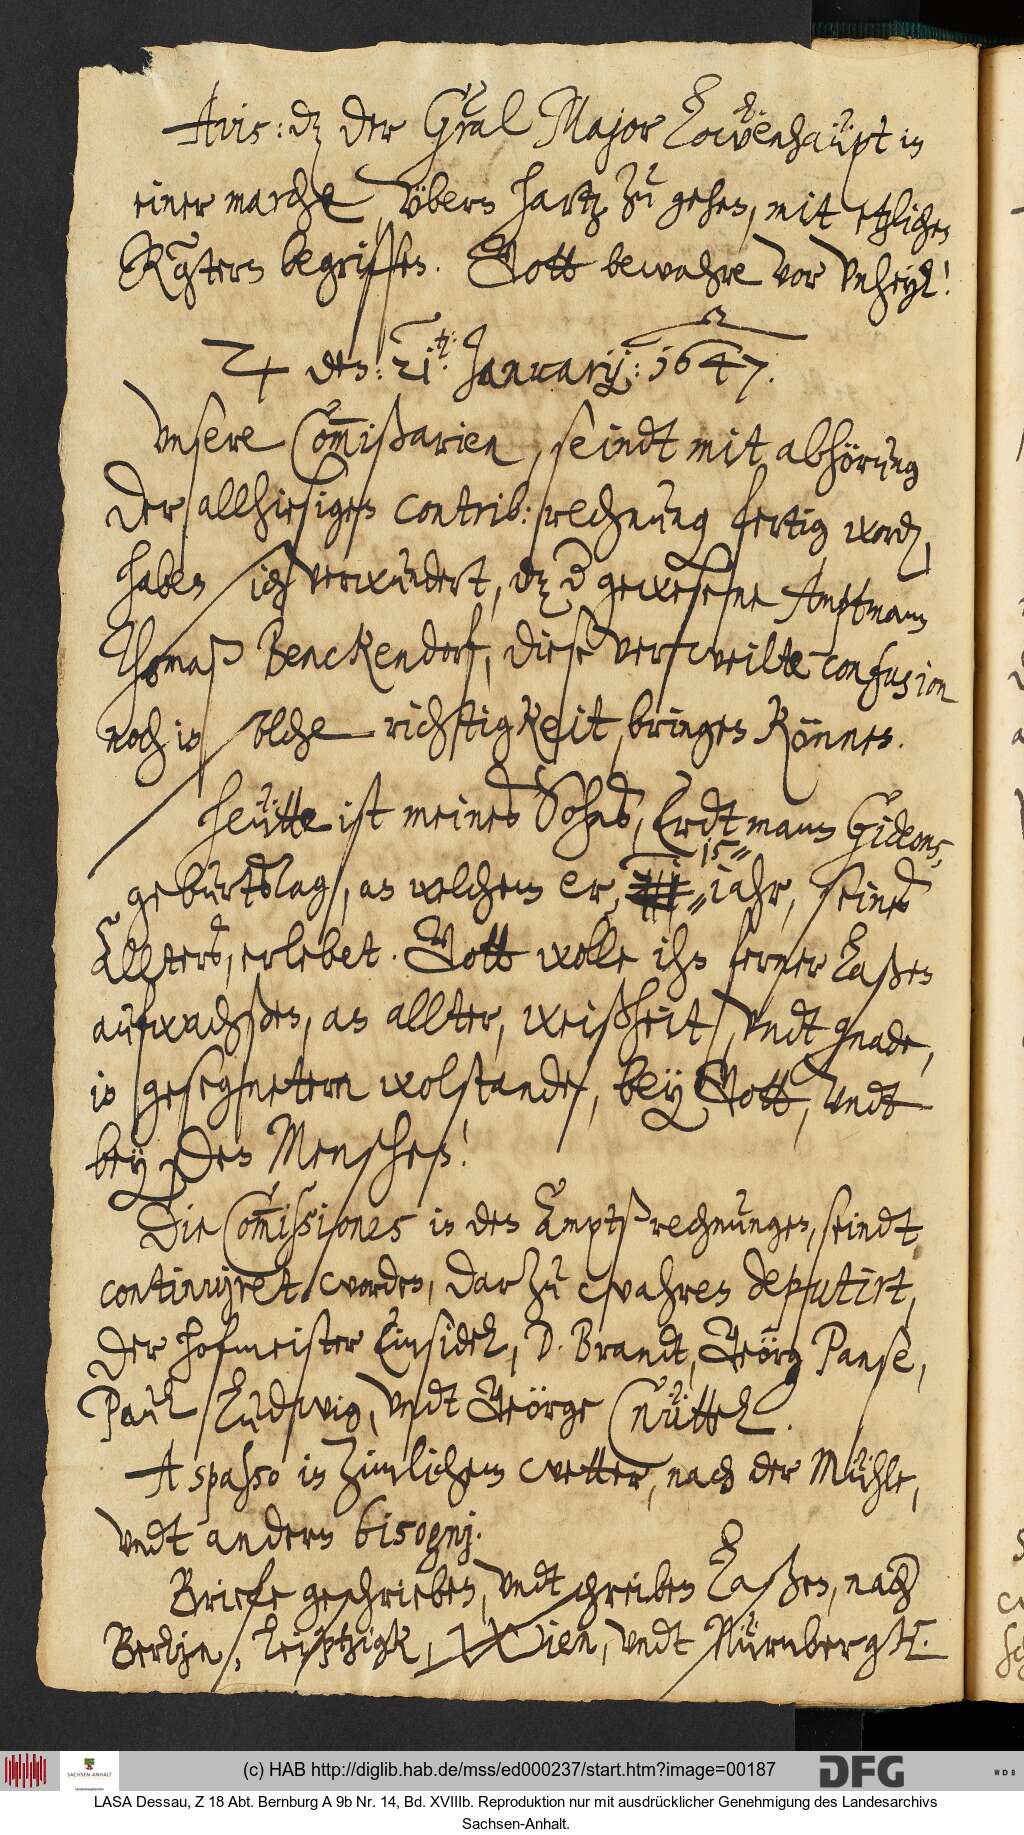 Avis: dz der Gral Major Löwenhaüpt in
einer marche vbern Hartz zu gehen, mit etzlichen
Räütern begriffen. Gott bewahre vor vnheyl!
♃ den: 21.ten: Januarij: 1647.
Vnsere Com̅ißarien, seindt mit abhörung
der allhiesigen contrib: rechnung fertig word,
haben sich verwundert, dz d gewesene Amptmann
Thomaß Benckendorf, diese verzweifelte confusion
noch in solche richtigkeit, bringen können.
Heütte ist meines Sohns, Erdtmann Gideons,
geburtstag, an welchem er, 15 iahr, seines
Allters, erlebet. Gott wolle ihn ferner laßen
aufwachßen, an allter, weißheit, vndt gnade,
in gesegnetem wolstande, bey Gott, vndt
bey den Menschen!
Die Com̅issiones in den Ämptsrechnungen, seindt
continuiret worden, darzu wahren deputirt,
der hofmeister Einsidel, D. Brandt, Geörg Panse,
Paul Ludwig, vndt Geörge Knüttel.
A spasso in zimlichem wetter, nach der Mühle,
vndt andern bisognj.
Briefe geschrieben, vndt schreiben laßen, nach
Berlin, Leiptzigk, Wien, vndt Nürnbergk.
(c) HAB http://diglib.hab.de/mss/ed000237/start.htm?image=00187
SACHSEN-ANHALT
DFG
WDB
LASA Dessau, Z 18 Abt. Bernburg A 9b Nr. 14, Bd. XVIIIb. Reproduktion nur mit ausdrücklicher Genehmigung des Landesarchivs
Sachsen-Anhalt.